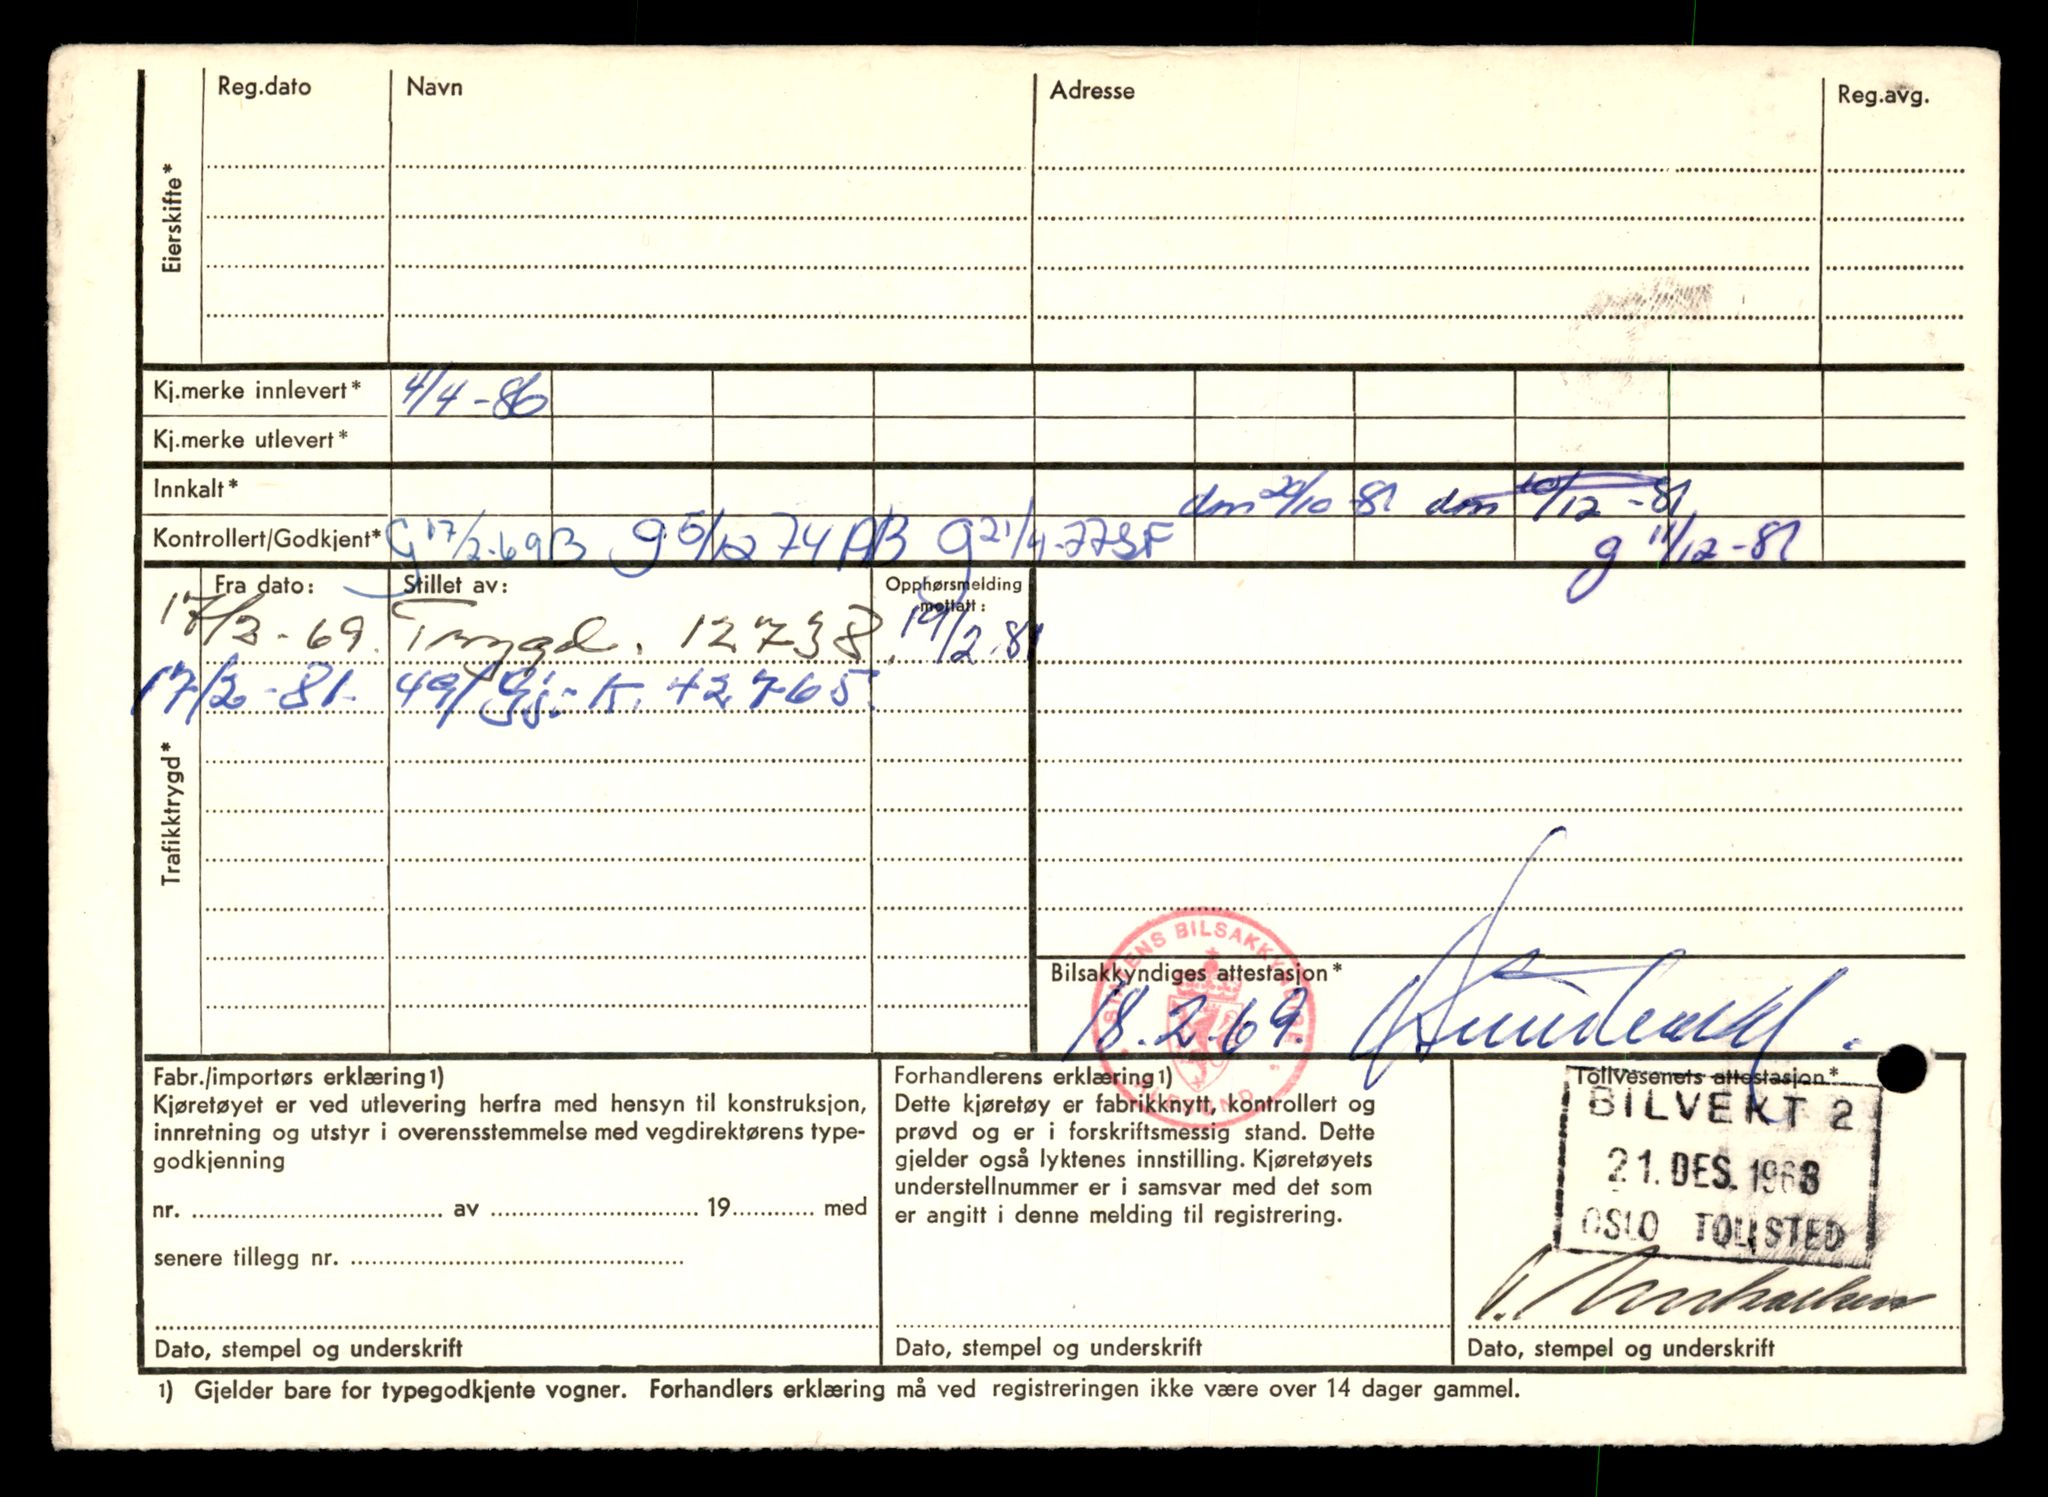 Reg.dato Navn Adresse Reg.avg.
Eierskifte*
Kj.merke innlevert* 4/4-86
Kj.merke utlevert*
Innkalt* dm 20/10-81 dm 10/12-81
Kontrollert/Godkjent* G 17/2-69 B g 5/12 74 AB g 21/4-77 SF g 11/12-81
Trafikktrygd*
Fra dato: Stillet av: Opphørsmelding
mottatt:
17/2-69. Trygd. 12738. 19/2.81
17/2-81. 49/Gj.k. 42765.
Bilsakkyndiges attestasjon*
STATENS BILSAKKYNDIGE
ÅLESUND
18.2.69.
Fabr./importørs erklæring1)
Kjøretøyet er ved utlevering herfra med hensyn til konstruksjon,
innretning og utstyr i overensstemmelse med vegdirektørens type-
godkjenning
nr. av 19 med
senere tillegg nr.
Dato, stempel og underskrift
Forhandlerens erklæring1)
Dette kjøretøy er fabrikknytt, kontrollert og
prøvd og er i forskriftsmessig stand. Dette
gjelder også lyktenes innstilling. Kjøretøyets
understellnummer er i samsvar med det som
er angitt i denne melding til registrering.
Dato, stempel og underskrift
Tollvesenets attestasjon*
BILVEKT 2
21. DES. 1968
OSLO TOLLSTED
Dato, stempel og underskrift
1) Gjelder bare for typegodkjente vogner. Forhandlers erklæring må ved registreringen ikke være over 14 dager gammel.